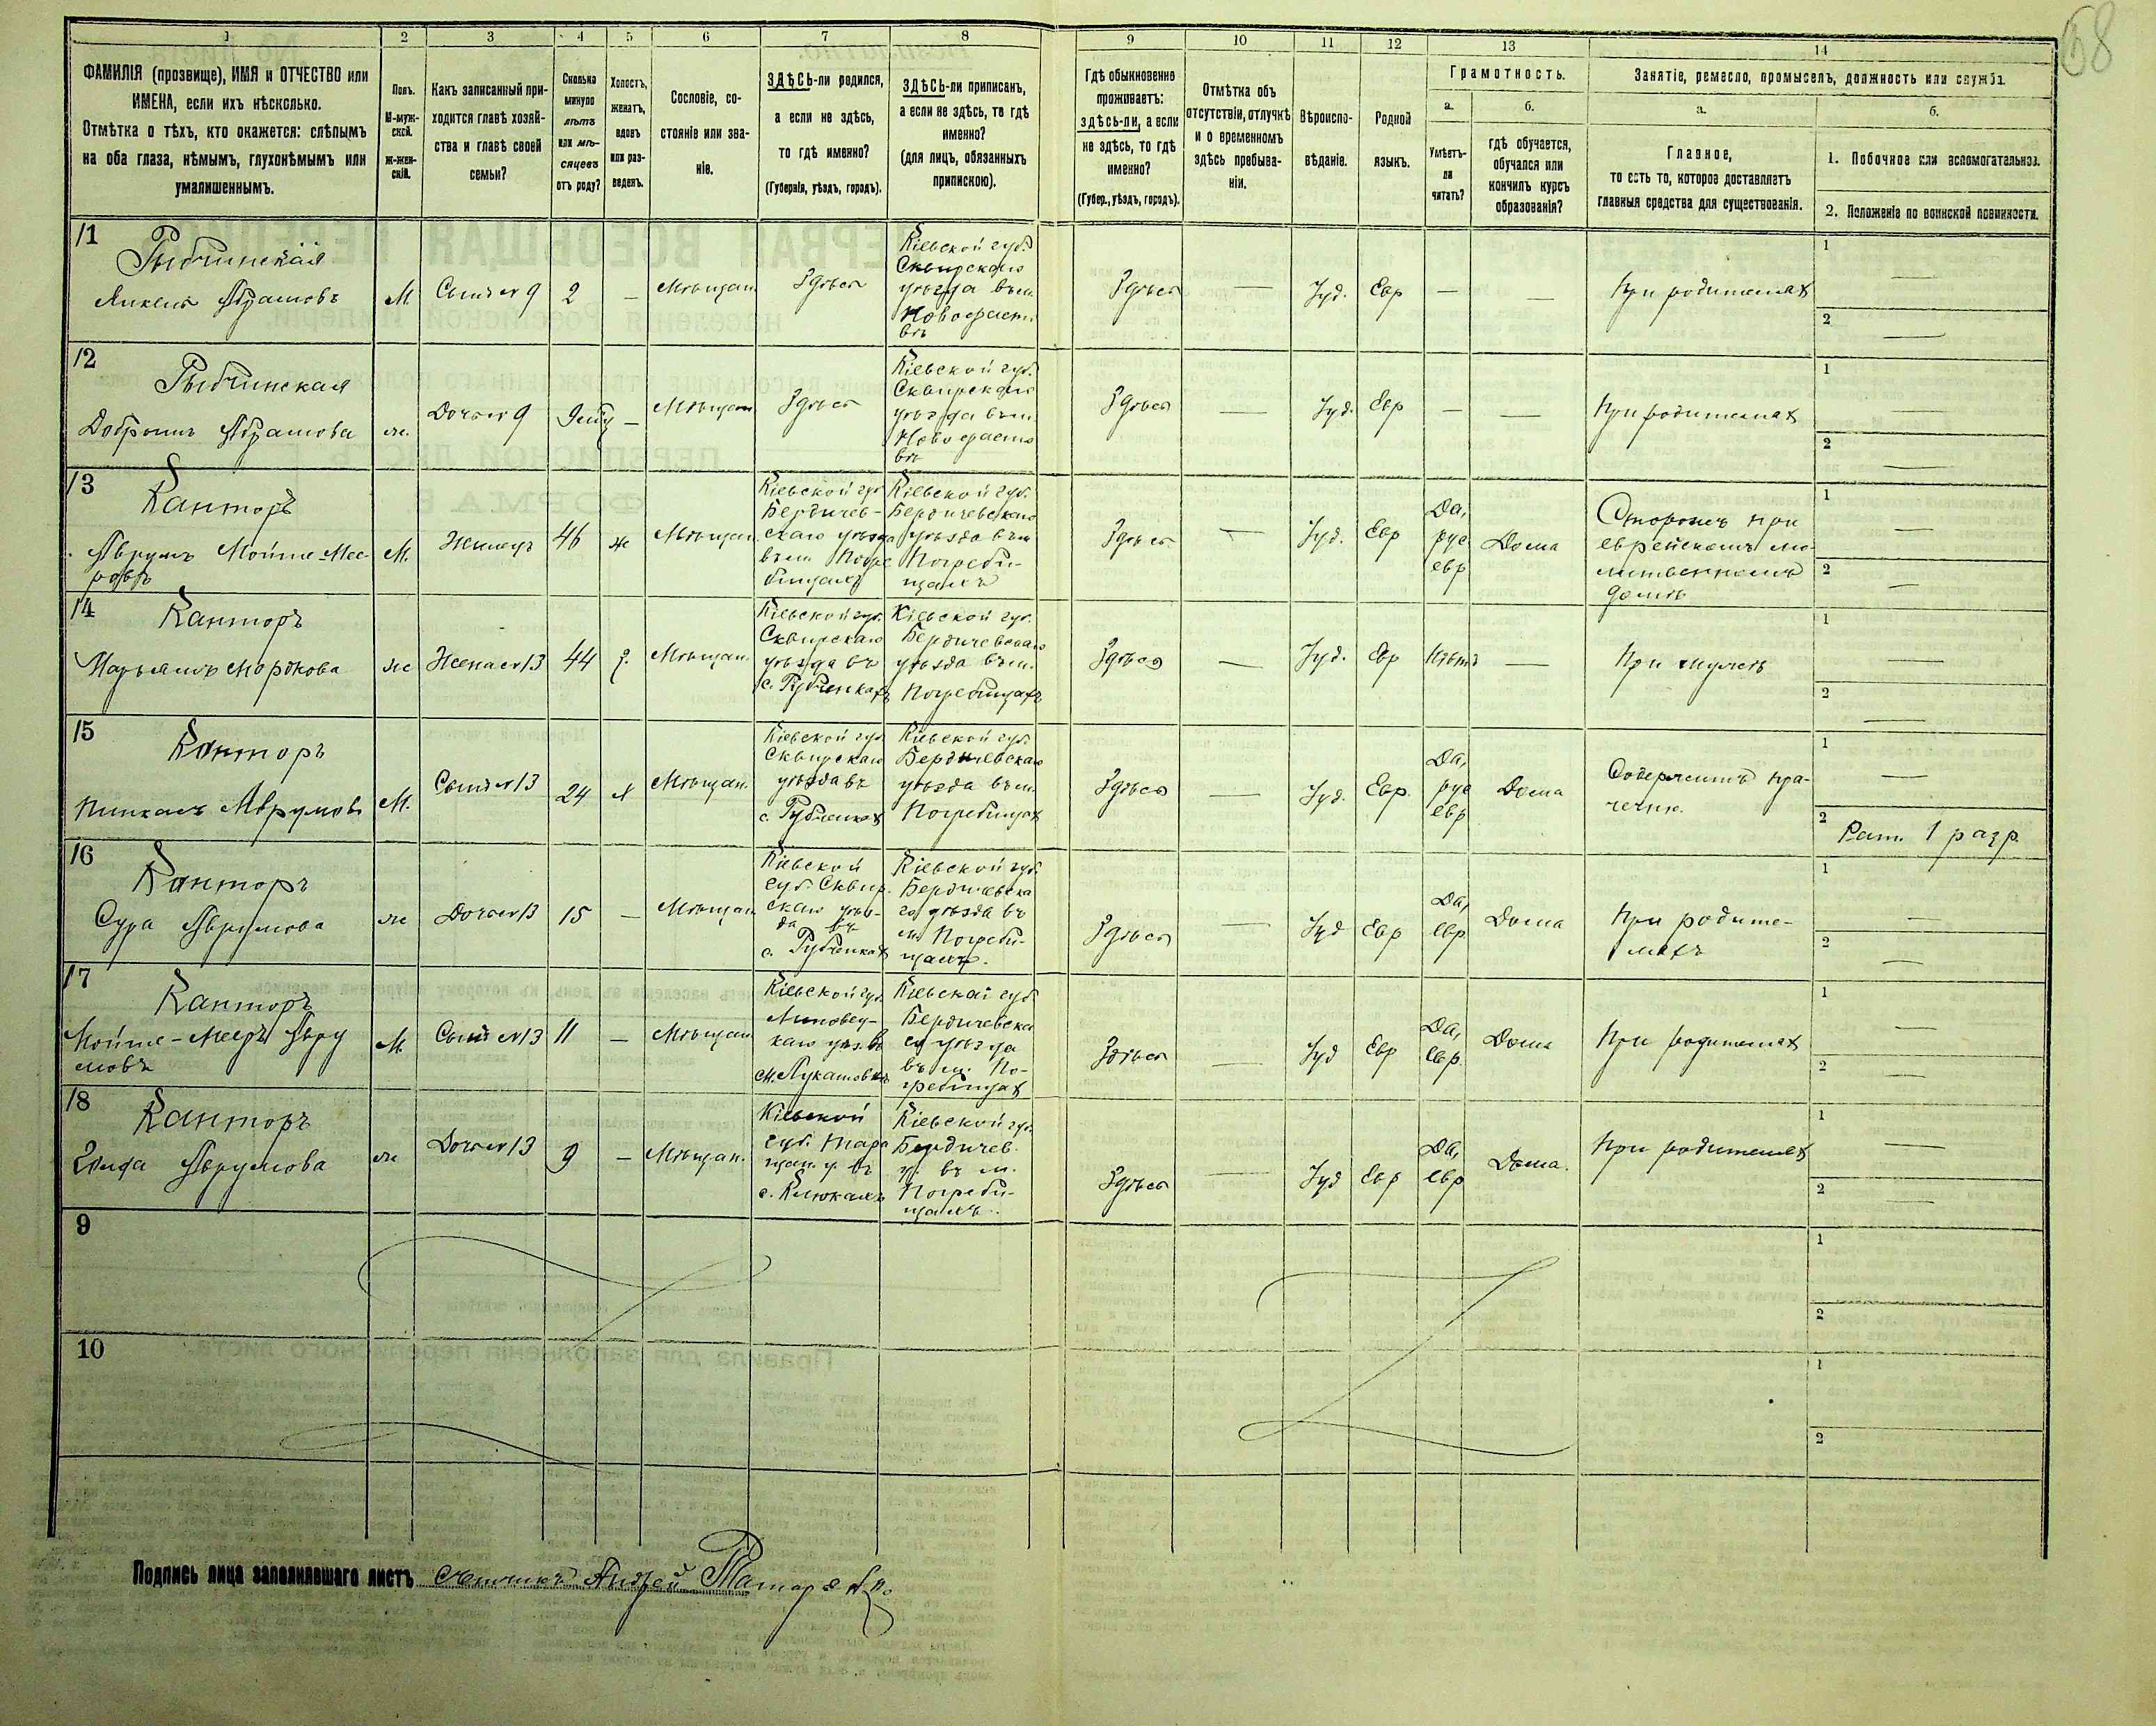 68
1 2 3 4 5 6 7 8 9 10 11 12 13 14
ФАМИЛІЯ (прозвище), ИМЯ и ОТЧЕСТВО или
ИМЕНА, если ихъ нѣсколько.
Отмѣтка о тѣхъ, кто окажется: слѣпымъ
на оба глаза, нѣмымъ, глухонѣмымъ или
умалишеннымъ.
Полъ.
М-муж-
ской.
Ж-жен-
скій.
Какъ записанный при-
ходится главѣ хозяй-
ства и главѣ своей
семьи?
Сколько
минуло
лѣтъ
или мѣ-
сяцевъ
отъ роду?
Холостъ,
женатъ,
вдовъ
или раз-
веденъ.
Сословіе, со-
стояніе или зва-
ніе.
ЗДѢСЬ-ли родился,
а если не здѣсь,
то гдѣ именно?
(Губернія, уѣздъ, городъ).
ЗДѢСЬ-ли приписанъ,
а если не здѣсь, то гдѣ
именно?
(для лицъ, обязанныхъ
припискою).
Гдѣ обыкновенно
проживаетъ:
здѣсь-ли, а если
не здѣсь, то гдѣ
именно?
(Губер., уѣздъ, городъ).
Отмѣтка объ
отсутствіи, отлучкѣ
и о временномъ
здѣсь пребыва-
ніи.
Вѣроиспо-
вѣданіе.
Родной
языкъ.
Грамотность.
а.
Умѣетъ-
ли
читать?
б.
гдѣ обучается,
обучался или
кончилъ курсъ
образованія?
Занятіе, ремесло, промыселъ, должность или служба.
а.
Главное,
то есть то, которое доставляетъ
главныя средства для существованія.
б.
1. Побочное или вспомогательное.
2. Положеніе по воинской повинности.
11
Рыбчинскій
Абрамовъ
М
Сынъ № 9
2
—
Мѣщан.
Здѣсь
Кіевской губ.
Сквирскаго
уѣзда въ м.
Здѣсь
—
Іуд.
Евр
—
—
При родителяхъ
1 —
2 —
12
Рыбчинская
Абрамова
ж.
Дочь № 9
—
Мѣщан
Здѣсь
Кіевской губ.
Сквирскаго
уѣзда въ м.
Здѣсь
—
Іуд.
Евр
—
—
При родителяхъ
1 —
2 —
13
Канторъ
Аврумъ Мойше-Мее-
ровъ
М.
Жилецъ
46
ж
Мѣщан.
Кіевской губ
Бердичев-
скаго уѣзда
въ м. Погре
бищахъ
Кіевской губ.
Бердичевскаго
уѣзда въ м
Погреби-
щахъ
Здѣсь
—
Іуд.
Евр
Да,
рус
евр
Дома
Сторожъ при
еврейскомъ мо-
литвенномъ
домѣ
1 —
2 —
14
Канторъ
Марьямъ Мордкова
ж
Жена № 13
44
з.
Мѣщан.
Кіевской губ.
Сквирскаго
уѣзда въ
Кіевской губ.
Бердичевскаго
уѣзда въ м.
Погребищахъ
Здѣсь
—
Іуд.
Евр
Нѣтъ
—
При мужѣ
1 —
2 —
15
Канторъ
Пинхасъ Аврумовъ
М.
Сынъ № 13
24
х
Мѣщан.
Кіевской губ
Сквирскаго
уѣзда въ
Кіевской губ.
Бердичевскаго
уѣзда въ м.
Погребищахъ
Здѣсь
—
Іуд.
Евр.
Да,
рус
евр
Дома
Содержитъ пра-
чечную.
1 —
2 Рат. 1 разр.
16
Канторъ
Сура Аврумова
ж
Дочь № 13
15
—
Мѣщан
Кіевской
губ. Сквир.
скаго уѣз-
да въ
Кіевской губ.
Бердичевска
го уѣзда въ
м. Погреби-
щахъ.
Здѣсь
—
Іуд
Евр
Да,
евр.
Дома
При родите-
ляхъ
1 —
2 —
17
Канторъ
Мойше-Мееръ Авру
мовъ
М.
Сынъ № 13
11
—
Мѣщан
Кіевской губ.
Липовец-
каго уѣз. въ
м. Лукашовкѣ
Кіевской губ
Бердичевска
го уѣзда
въ м. По-
гребищахъ
Здѣсь
—
Іуд
Евр
Да,
евр.
Дома
При родителяхъ
1 —
2 —
18
Канторъ
Аврумова
ж
Дочь № 13
9
—
Мѣщан.
Кіевской
губ. Тара
щан. у. въ
с.
Кіевской губ.
Бердичев.
у. въ м.
Погреби-
щахъ.
Здѣсь
—
Іуд
Евр
Да,
евр
Дома.
При родителяхъ
1 —
2 —
9
1
2
10
1
2
Подпись лица заполнявшаго листъ Счетчикъ Андрей